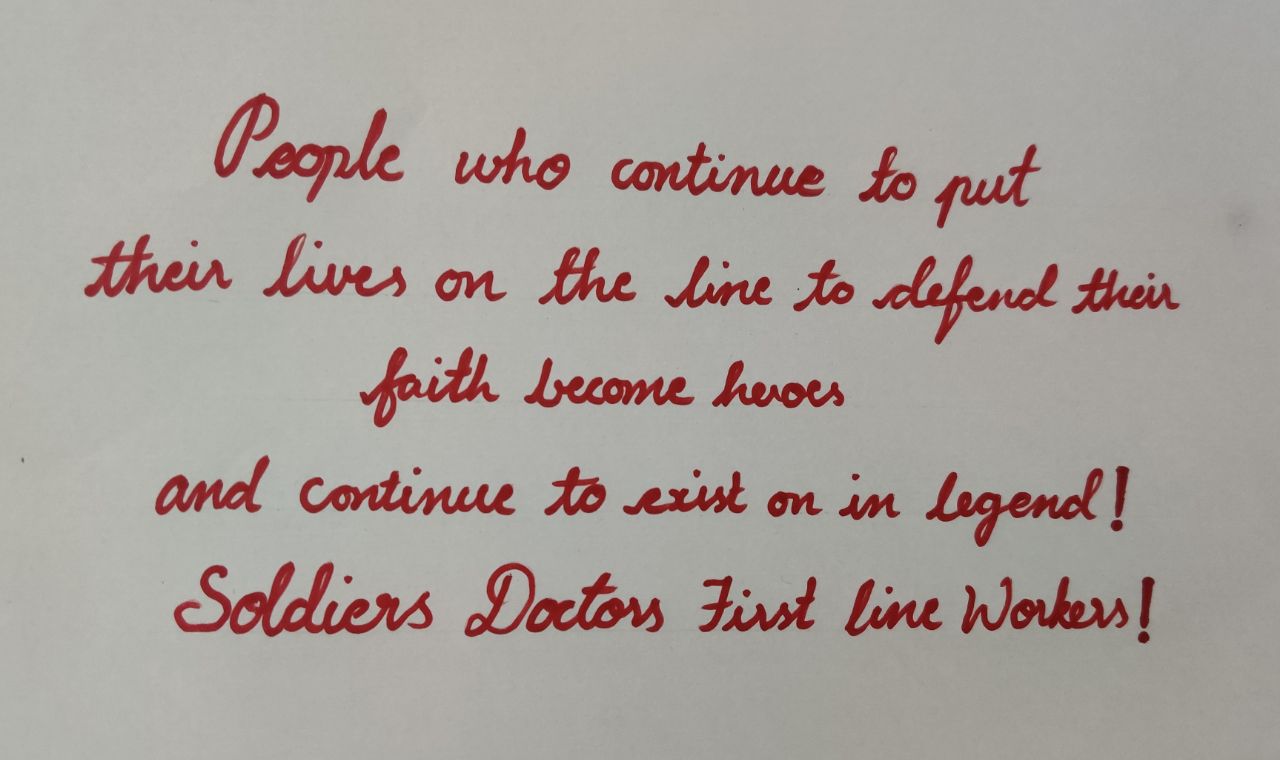 People who continue to put
their lives on the line to defend their
faith become heroes
and continue to exist on in legend!
Soldiers Doctors First line Workers!